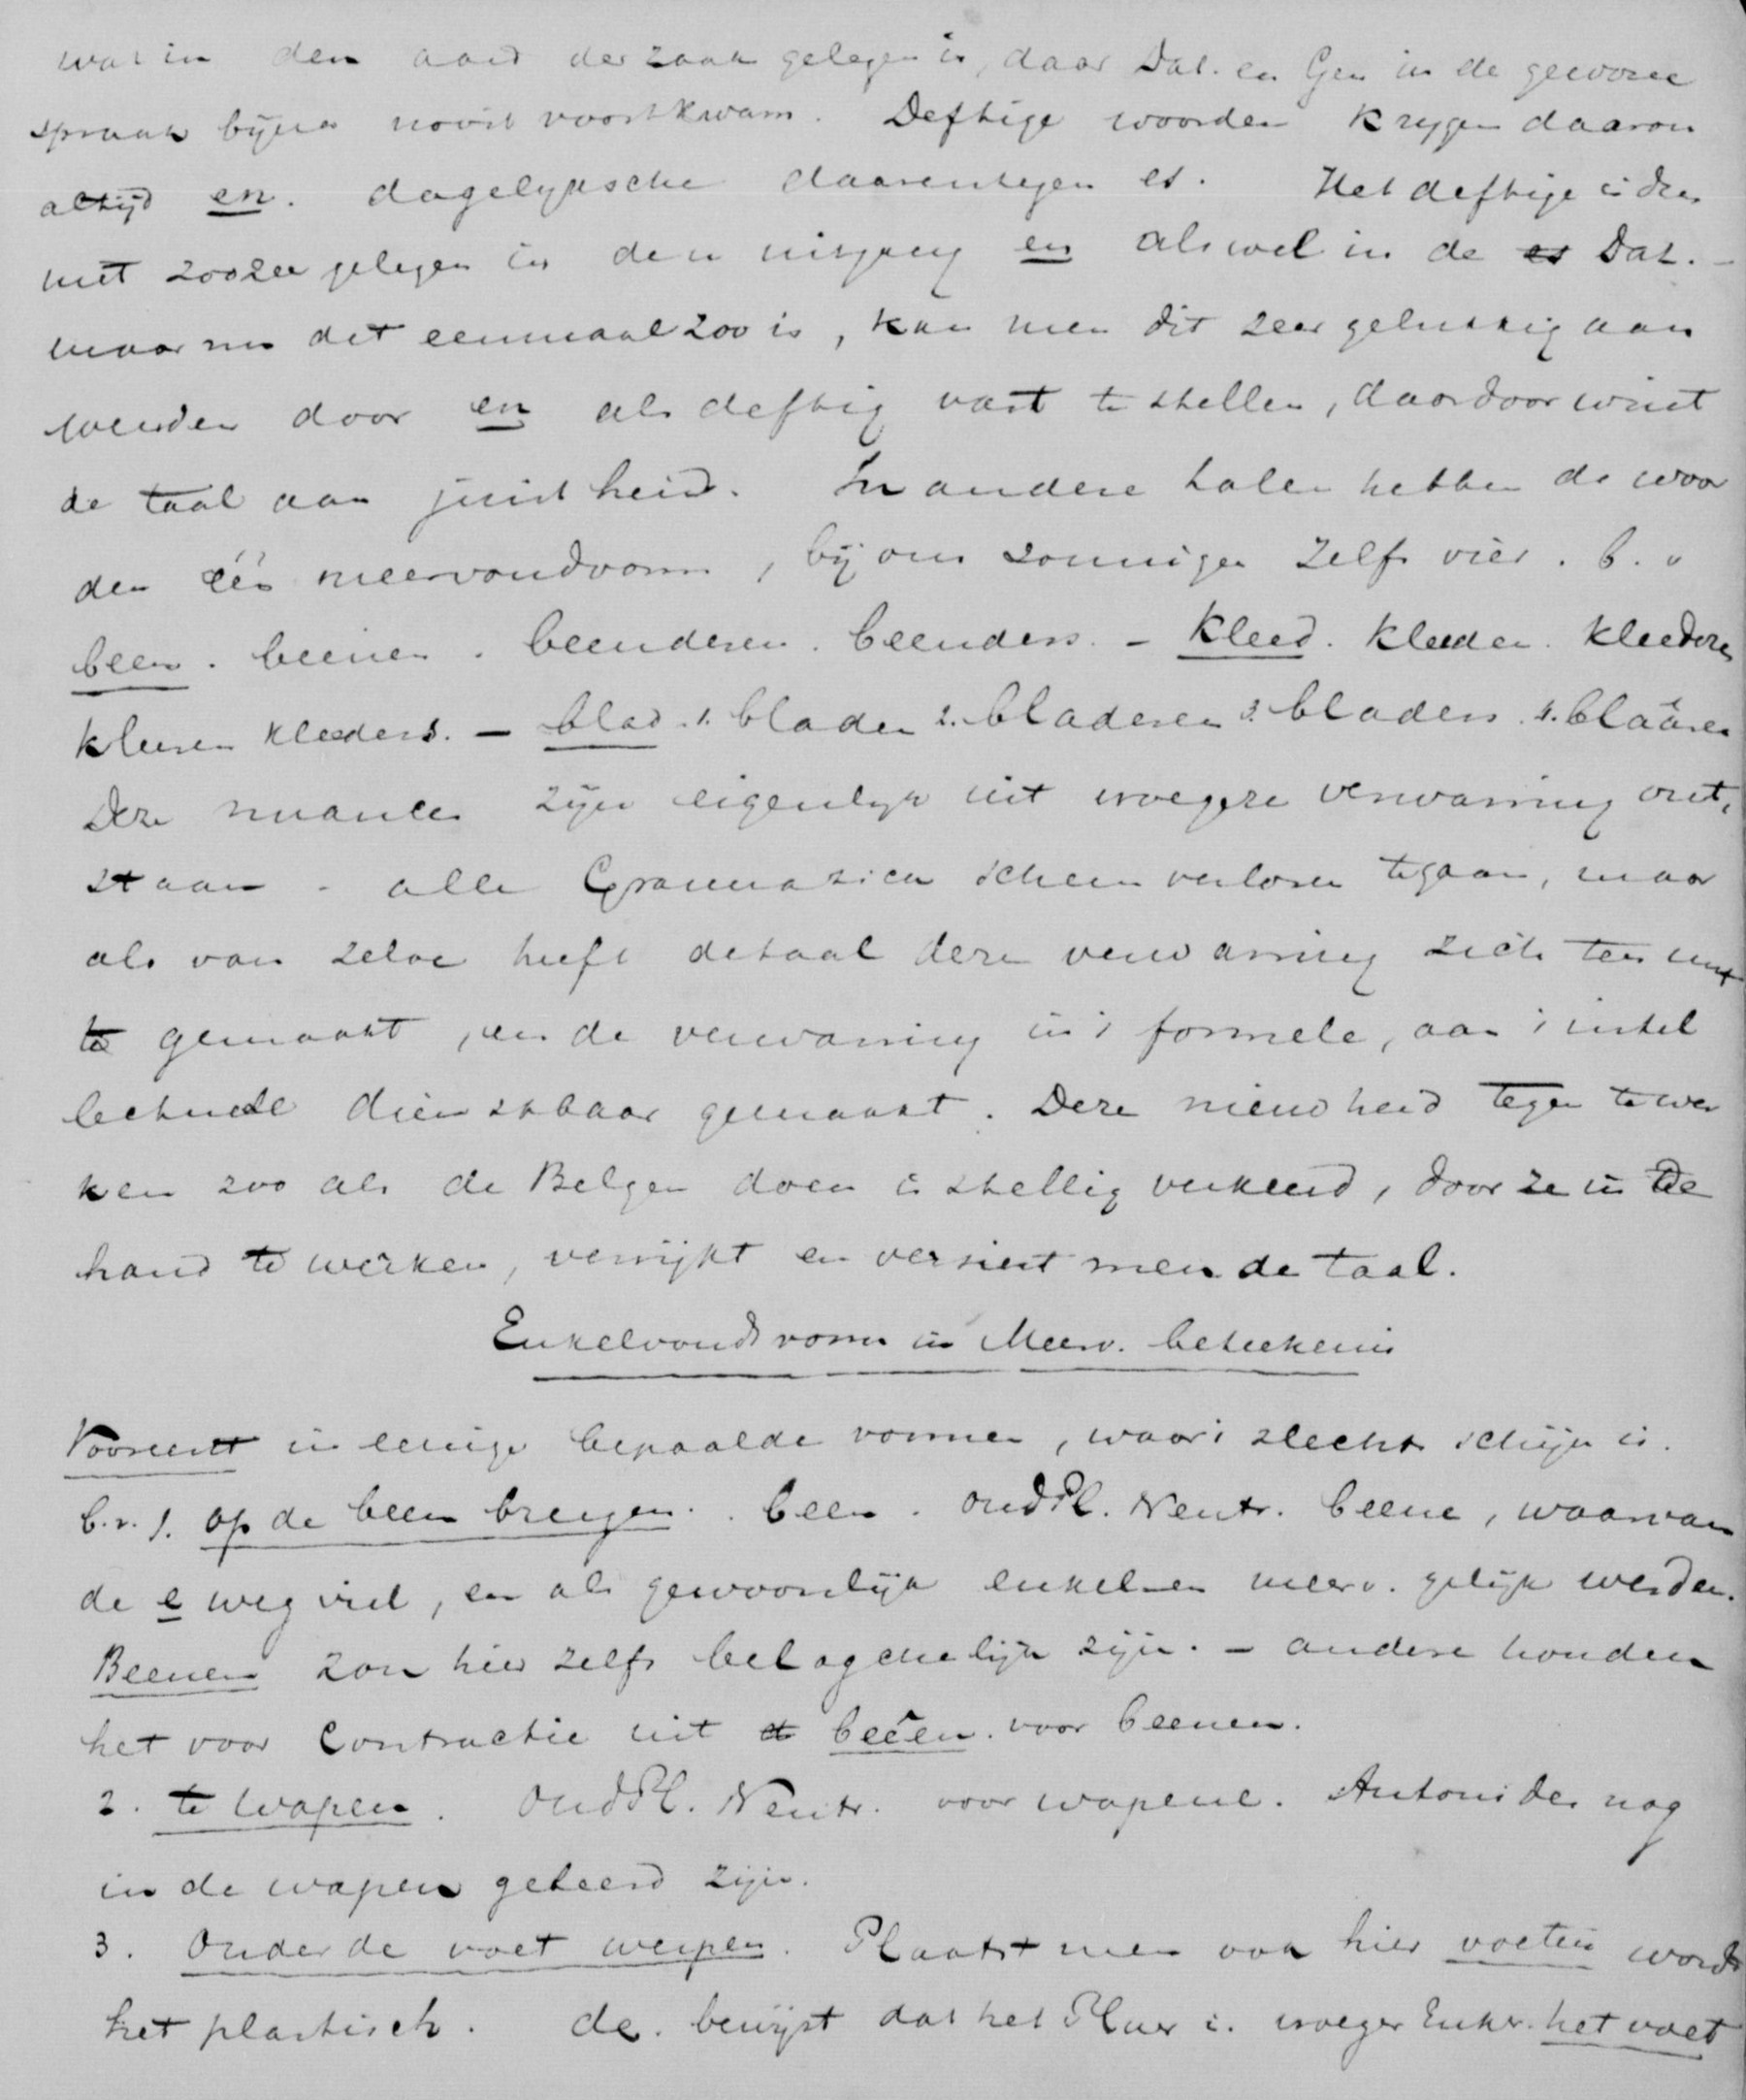 wat in den aard der zaak gelegen is, daar Dat. en Gen in de gewone
spraak bijna nooit voortkwam. Deftige woorden krygen daarom
altijd en. dagelyksche daarentegen es. Het deftige is dus
niet zoozee gelegen in den uitgang en als wel in de es Dat. -
maar nu dit eenmaal zoo is, kan men dit zeer gelukkig aan
wenden door en als deftig vast te stellen, daardoor wint
de taal aan juistheid. In andere talen hebben de woor
den één meervoudvorm, bij ons sommigen zelfs vier. b.v
been. beenen. beenderen. beenders. - kleed. kleeden. kleederen
kleeren kleeders. - blad. 1. bladen 2. bladeren 3. bladers. 4. blaâren
Deze nuances zijn eigenlyk uit vroegere verwarring ont,
staan - alle Grammatica scheen verloren te gaan, maar
als van zelve heeft de taal deze verwarring zich ten nut
te gemaakt, en de verwarring in 't formele, aan 't intel
lectuele dienstbaar gemaakt. Deze nieuwheid tegen te wer
ken zoo als de Belgen doen is stellig verkeerd, door ze in de
hand te werken, verrijkt en versiert men de taal.
Enkelvoudsvorm in Meerv. beteekenis
Vooreerst in eenige bepaalde vormen, waar 't slechts schijn is.
b.v. 1. op de been brengen. been. oud Pl. Neutr. beene, waarvan
de e weg viel, en als gewoonlijk enkel- en meerv. gelijk werden.
Beenen zou hier zelfs belagchelijk zijn. - andere houden
het voor Contractie uit beêen. voor beenen.
2. te wapen. Oud Pl. Neutr. voor wapene. Antonides nog
in de wapen geleerd zijn.
3. Onder de voet werpen. Plaatst men ook hier voeten wordt
het plastisch. de. bewijst dat het Plur is. vroeger Enkv. het voet